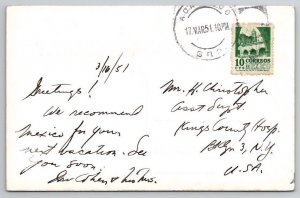 ACA
17.MAR51.10PM
10 CORREOS
3/16/51
Greetings!
We recommend
Mexico for your
next vacation. See
you soon.
Cohen & his Mrs.
Mr. H. Christopher
Asst Supt
Kings County Hosp.
Bklyn 3, N.Y.
U.S.A.